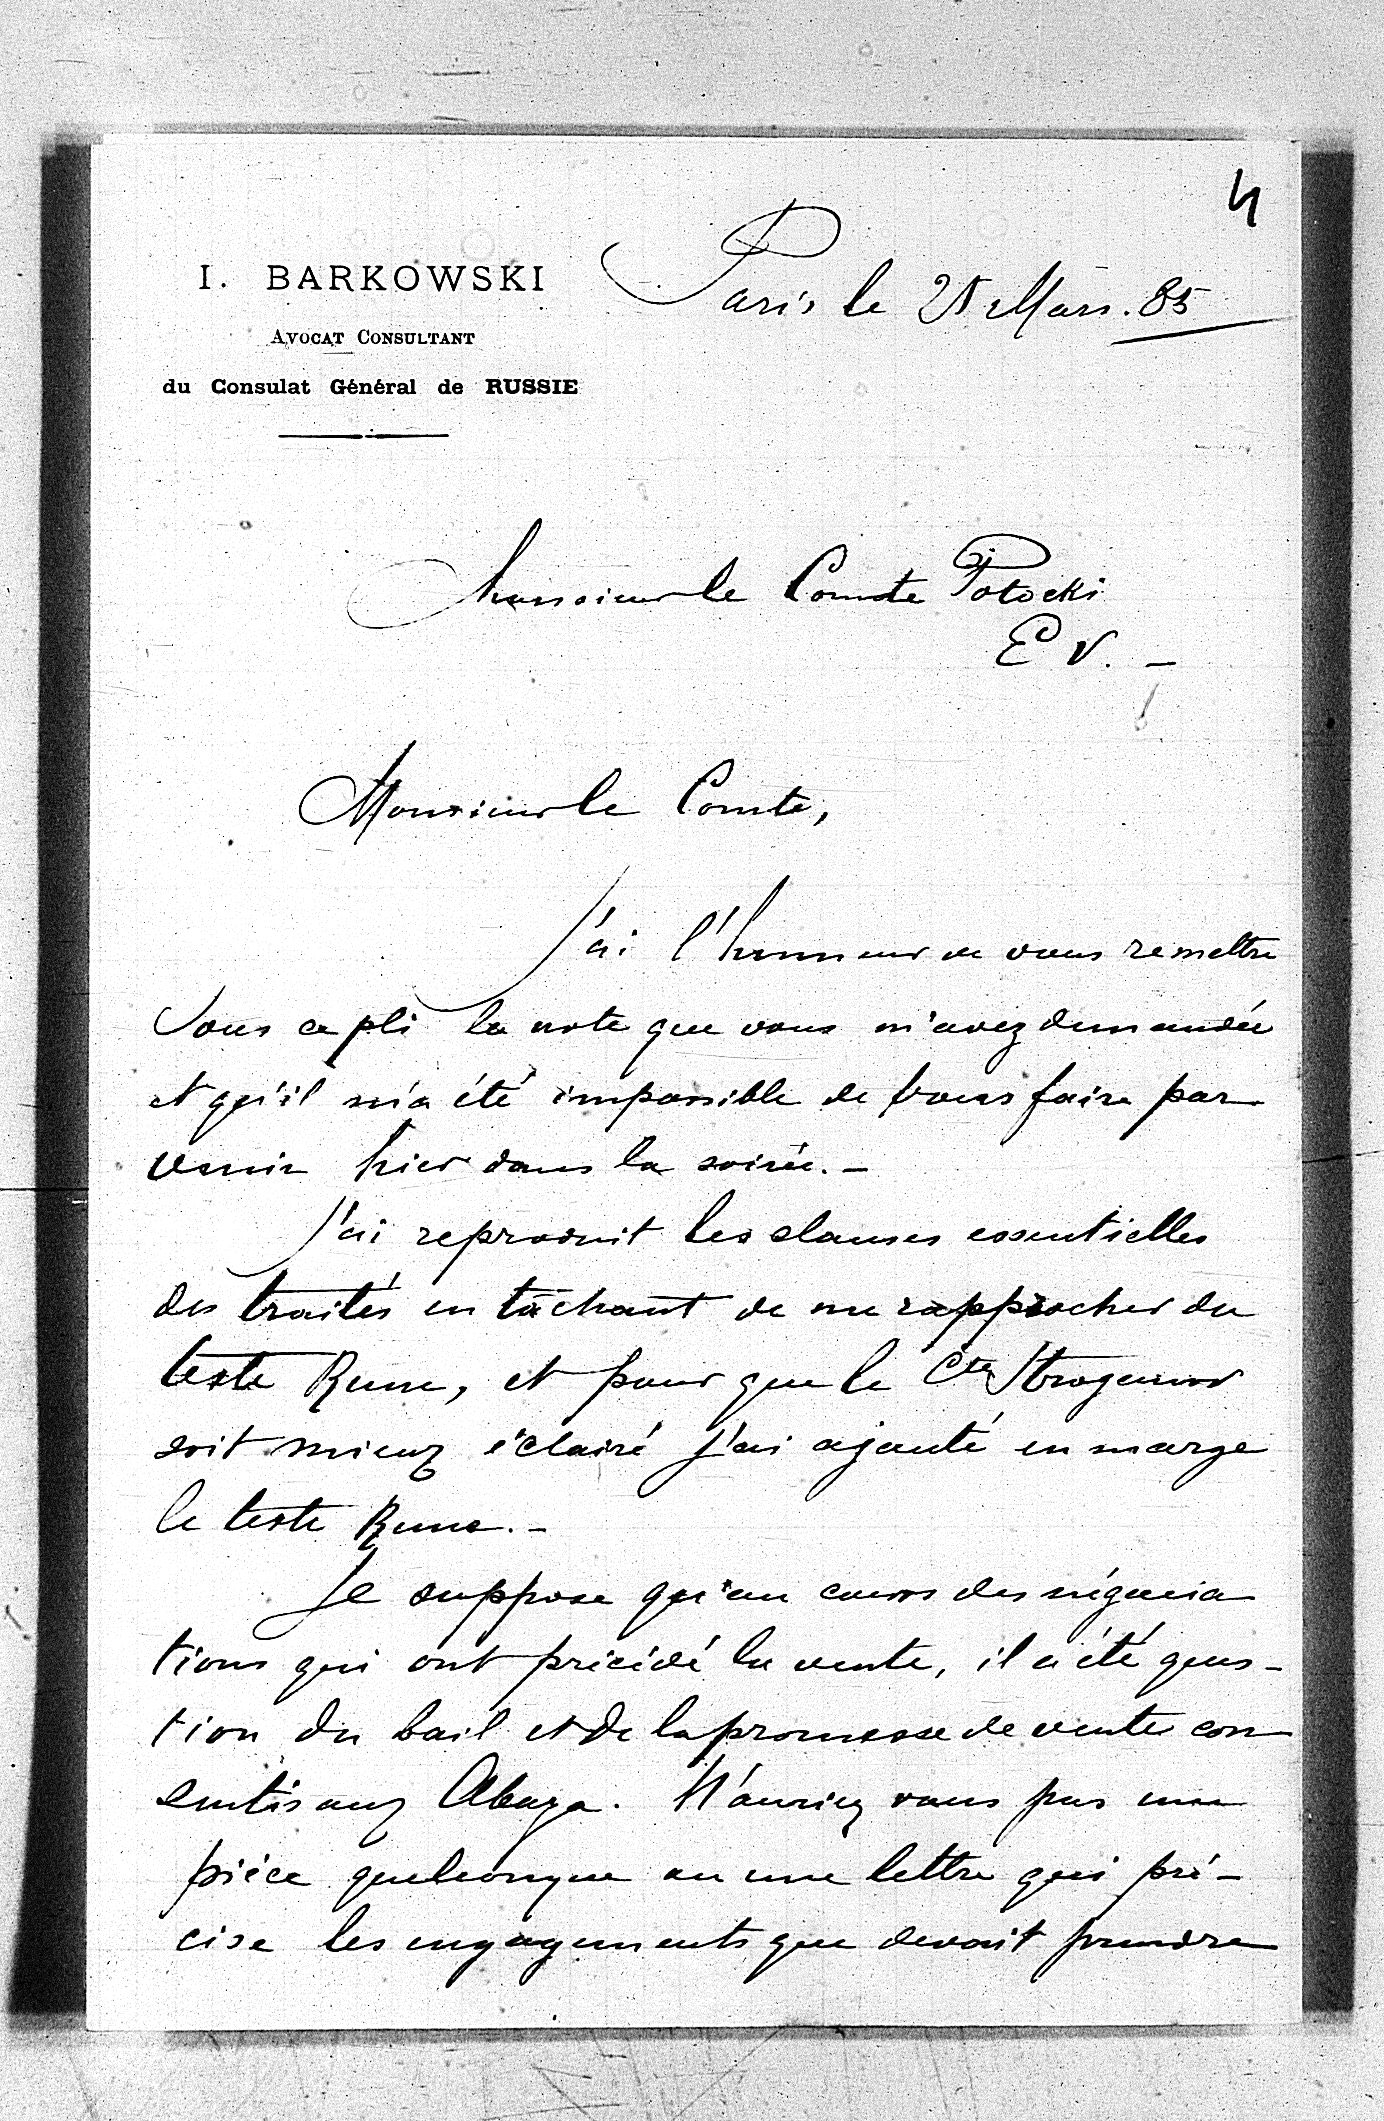 4
I. BARKOWSKI
Avocat Consultant
du Consulat Général de RUSSIE
Paris le 25 Mars. 85
Monsieur le Comte Potocki
E V. –
Monsieur le Comte,
J'ai l'honneur de vous remettre
sous ce pli la note que vous m'avez demandée
et qu'il m'a été impossible de vous faire par
venir hier dans la soirée. –
J'ai reproduit les clauses essentielles
des traités en tâchant de me rapprocher du
texte Russe, et pour que le Cte Strogonoff
soit mieux éclairé j'ai ajouté en marge
le texte Russe. –
Je suppose qu'au cours des négocia
tions qui ont précédé la vente, il a été ques–
tion du bail et de la promesse de vente con
sentis aux Abaza. N'auriez vous pas une
pièce quelconque ou une lettre qui pré–
cise les engagements que devait prendre